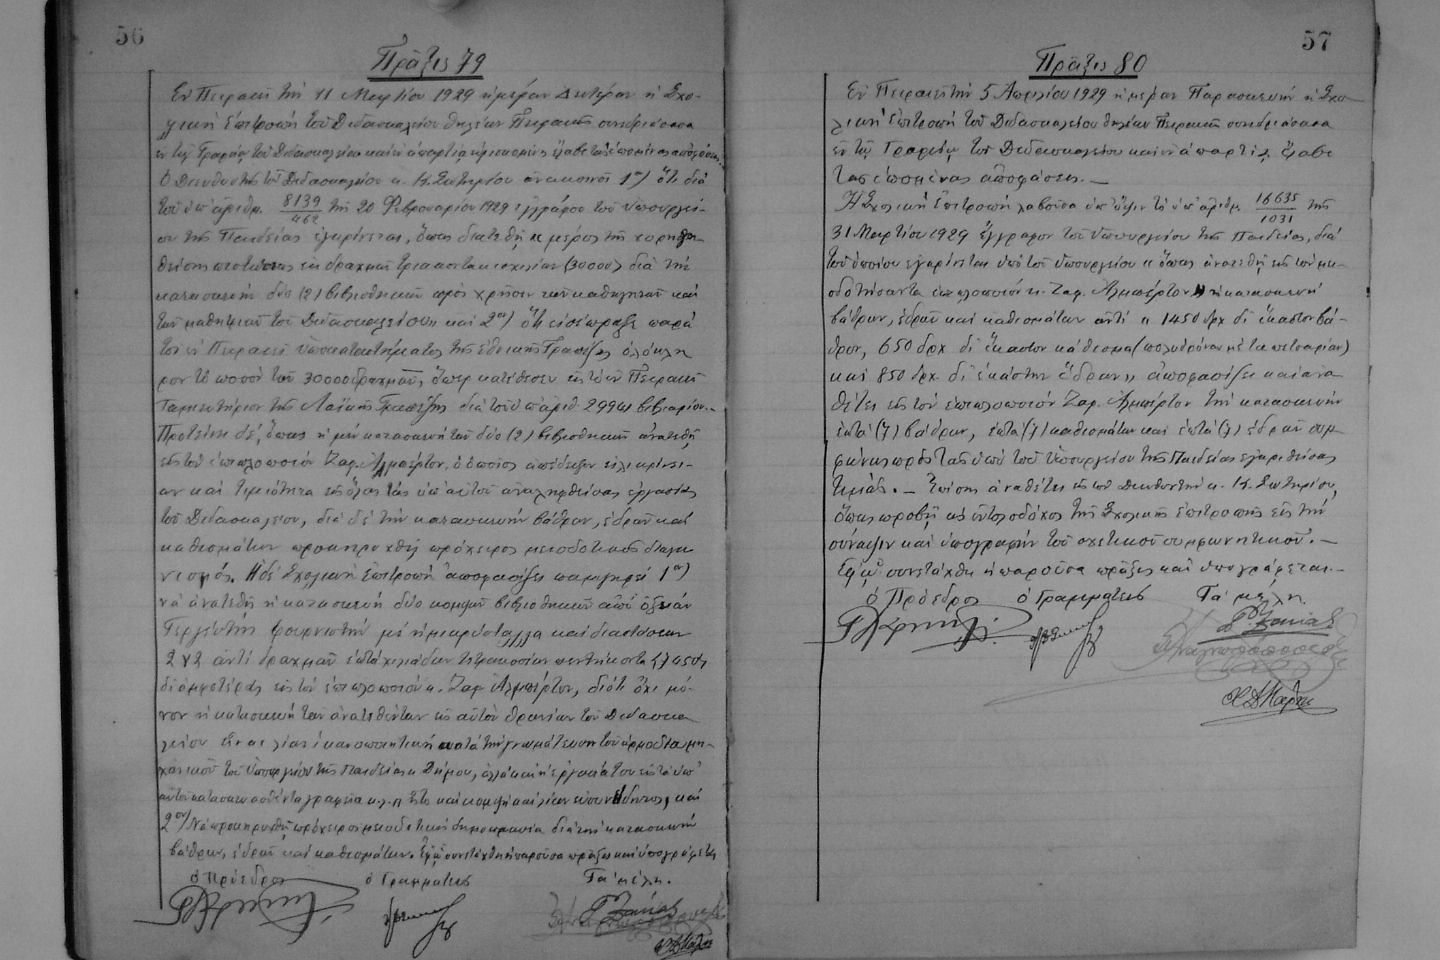 56
Πρᾶξις 79
Ἐν Πειραιεῖ τῇ 11 Μαρτίου 1929 ἡμέραν Δευτέραν ἡ Σχο-
λικὴ Ἐπιτροπὴ τοῦ Διδασκαλείου θηλέων Πειραιῶς συνεδριάσασα
ἐν τῷ Γραφείῳ τοῦ Διδασκαλείου καὶ ἐν ἀπαρτίᾳ εὑρισκομένη ἔλαβε τὰς ἑπομένας ἀποφάσεις.
Ὁ Διευθυντὴς τοῦ Διδασκαλείου κ. Κ. Σωτηρίου ἀνακοινοῖ 1ον) ὅτι διὰ
τοῦ ὑπ' ἀριθμ. 8139/462 τῆς 20 Φεβρουαρίου 1929 ἐγγράφου τοῦ Ὑπουργεί-
ου τῆς Παιδείας ἐγκρίνεται, ὅπως διατεθῇ μέρος τῆς χορηγη-
θείσης πιστώσεως ἐκ δραχμῶν τριάκοντα χιλιάδων (30000) διὰ τὴν
κατασκευὴν δύο (2) βιβλιοθηκῶν πρὸς χρῆσιν τῶν καθηγητῶν καὶ
τῶν μαθητριῶν τοῦ Διδασκαλείου καὶ 2ον) ὅτι εἰσέπραξε παρὰ
τοῦ ἐν Πειραιεῖ Ὑποκαταστήματος τῆς Ἐθνικῆς Τραπέζης ὁλόκλη
ρον τὸ ποσὸν τῶν 30000 δραχμῶν, ὅπερ κατέθεσεν εἰς τὸ ἐν Πειραιεῖ
Ταμιευτήριον τῆς Λαϊκῆς Τραπέζης διὰ τοῦ ὑπ' ἀριθ. βιβλιαρίου.-
Προτείνει δέ, ὅπως ἡ μὲν κατασκευὴ τῶν δύο (2) βιβλιοθηκῶν ἀνατεθῇ
εἰς τὸν ἐπιπλοποιὸν Ζαφ. Ἀλμπέρτον, ὁ ὁποῖος ἀπέδειξεν εἰλικρίνει-
αν καὶ τιμιότητα εἰς ὅλας τὰς ὑπ' αὐτοῦ ἀναληφθείσας ἐργασίας
τοῦ Διδασκαλείου, διὰ δὲ τὴν κατασκευὴν βάθρων, ἑδρῶν καὶ
καθισμάτων προκηρυχθῇ πρόχειρος μειοδοτικὸς διαγω
νισμός. Ἡ δὲ Σχολικὴ Ἐπιτροπὴ ἀποφασίζει παμψηφεί 1ον)
νὰ ἀνατεθῇ ἡ κατασκευὴ δύο κομψῶν βιβλιοθηκῶν ἀπὸ ὀξυὰν
Τεργέστης φουρνιστὴν μὲ ἡμικρύσταλλα καὶ διαστάσεων
2 Χ 2 ἀντὶ δραχμῶν ἑπτὰ χιλιάδων τετρακοσίων πεντήκοντα (7450)
δι' ἀμφοτέρας εἰς τὸν ἐπιπλοποιὸν κ. Ζαφ. Ἀλμπέρτον, διότι ὄχι μό-
νον ἡ κατασκευὴ τῶν ἀνατεθέντων εἰς αὐτὸν θρανίων τοῦ Διδασκα
λείου εἶναι λίαν ἱκανοποιητικὴ κατὰ τὴν γνωμάτευσιν τοῦ ἁρμοδίου μη-
χανικοῦ τοῦ Ὑπουργείου τῆς Παιδείας κ. Δήμου, ἀλλὰ καὶ ἡ ἐργασία του εἰς τὰ ὑπ'
αὐτοῦ κατασκευασθέντα γραφεῖα κ.λ.π. καὶ κομψὴ καὶ λίαν εὐσυνείδητος, καὶ
2ον) Νὰ προκηρυχθῇ πρόχειρος μειοδοτικὴ δημοπρασία διὰ τὴν κατασκευὴν
βάθρων, ἑδρῶν καὶ καθισμάτων. Ἐφ' ᾧ συνετάχθη ἡ παροῦσα πρᾶξις καὶ ὑπογράφεται
ὁ Πρόεδρος ὁ Γραμματεύς Τὰ μέλη.
57
Πρᾶξις 80
Ἐν Πειραιεῖ τῇ 5 Ἀπριλίου 1929 ἡμέραν Παρασκευὴν ἡ Σχο-
λικὴ Ἐπιτροπὴ τοῦ Διδασκαλείου θηλέων Πειραιῶς συνεδριάσασα
ἐν τῷ Γραφείῳ τοῦ Διδασκαλείου καὶ ἐν ἀπαρτίᾳ ἔλαβε
τὰς ἑπομένας ἀποφάσεις.—
Ἡ Σχολικὴ Ἐπιτροπὴ λαβοῦσα ὑπ' ὄψιν τὸ ὑπ' ἀριθμ. 16635/1031 τῆς
31 Μαρτίου 1929 ἔγγραφον τοῦ Ὑπουργείου τῆς Παιδείας, διὰ
τοῦ ὁποίου ἐγκρίνεται ὑπὸ τοῦ Ὑπουργείου ὅπως ἀνατεθῇ εἰς τὸν μει-
οδοτήσαντα ἐπιπλοποιὸν κ. Ζαφ. Ἀλμπέρτον ἡ κατασκευὴ
βάθρων, ἑδρῶν καὶ καθισμάτων ἀντὶ 1450 δρχ δι' ἕκαστον βά-
θρον, 650 δρχ δι' ἕκαστον κάθισμα (πολυθρόναν μὲ ταπετσαρίαν)
καὶ 850 δρχ δι' ἑκάστην ἕδραν, ἀποφασίζει καὶ ἀνα
θέτει εἰς τὸν ἐπιπλοποιὸν Ζαφ. Ἀλμπέρτον τὴν κατασκευὴν
ἑπτὰ (7) βάθρων, ἑπτὰ (7) καθισμάτων καὶ ἑπτὰ (7) ἑδρῶν συμ-
φώνως πρὸς τὰς ὑπὸ τοῦ Ὑπουργείου τῆς Παιδείας ἐγκριθείσας
τιμάς.— Ἐπίσης ἀναθέτει εἰς τὸν Διευθυντὴν κ. Κ. Σωτηρίου,
ὅπως προβῇ ὡς ἐντολοδόχος τῆς Σχολικῆς Ἐπιτροπῆς εἰς τὴν
σύναψιν καὶ ὑπογραφὴν τοῦ σχετικοῦ συμφωνητικοῦ.—
Ἐφ' ᾧ συνετάχθη ἡ παροῦσα πρᾶξις καὶ ὑπογράφεται.—
ὁ Πρόεδρος ὁ Γραμματεύς Τὰ μέλη.